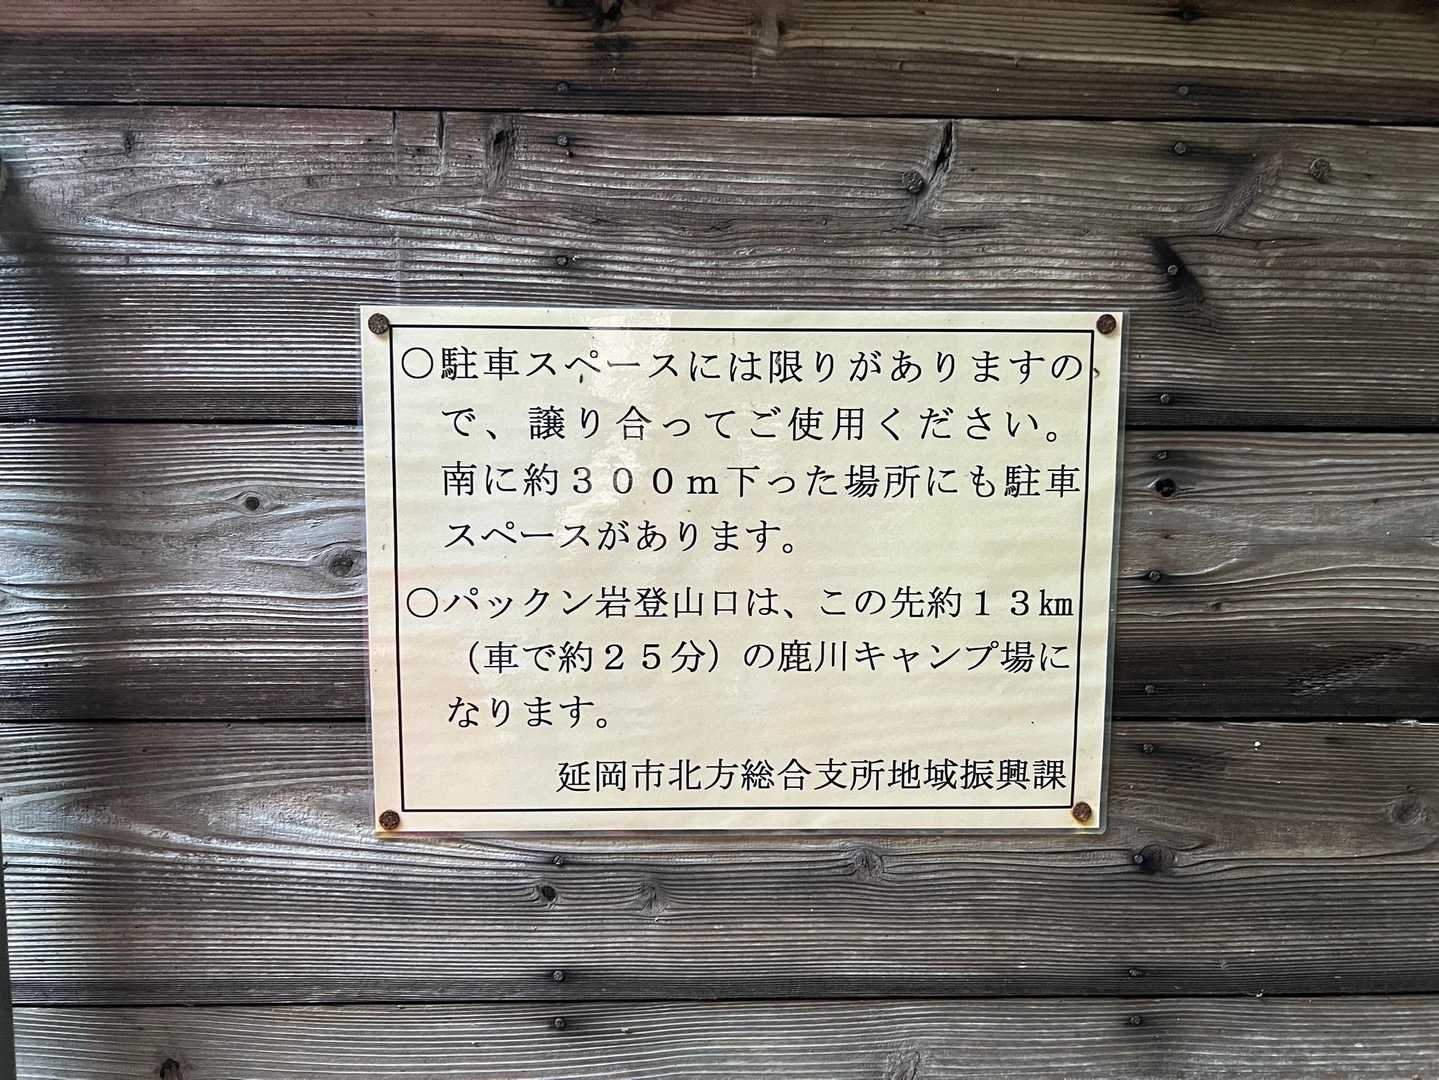 ○駐車スペースには限りがありますの
で、譲り合ってご使用ください。
南に約３００ｍ下った場所にも駐車
スペースがあります。
○パックン岩登山口は、この先約１３㎞
（車で約２５分）の鹿川キャンプ場に
なります。
延岡市北方総合支所地域振興課